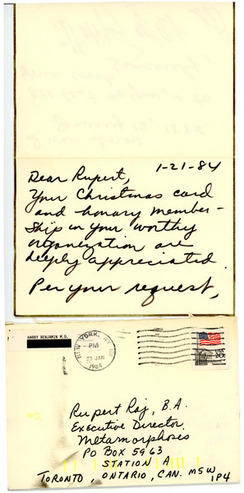 1-21-84
Dear Rupert,
Your Christmas card
and honary member-
ship in your worthy
organization are
deeply appreciated.
Per your request,
HARRY BENJAMIN M.D.
NEW YORK, NY
PM
23 JAN
1984
Rupert Raj, B.A.
Executive Director
Metamorphoses
PO Box 5963
STATION A
TORONTO, ONTARIO, CAN. M5W
1P4